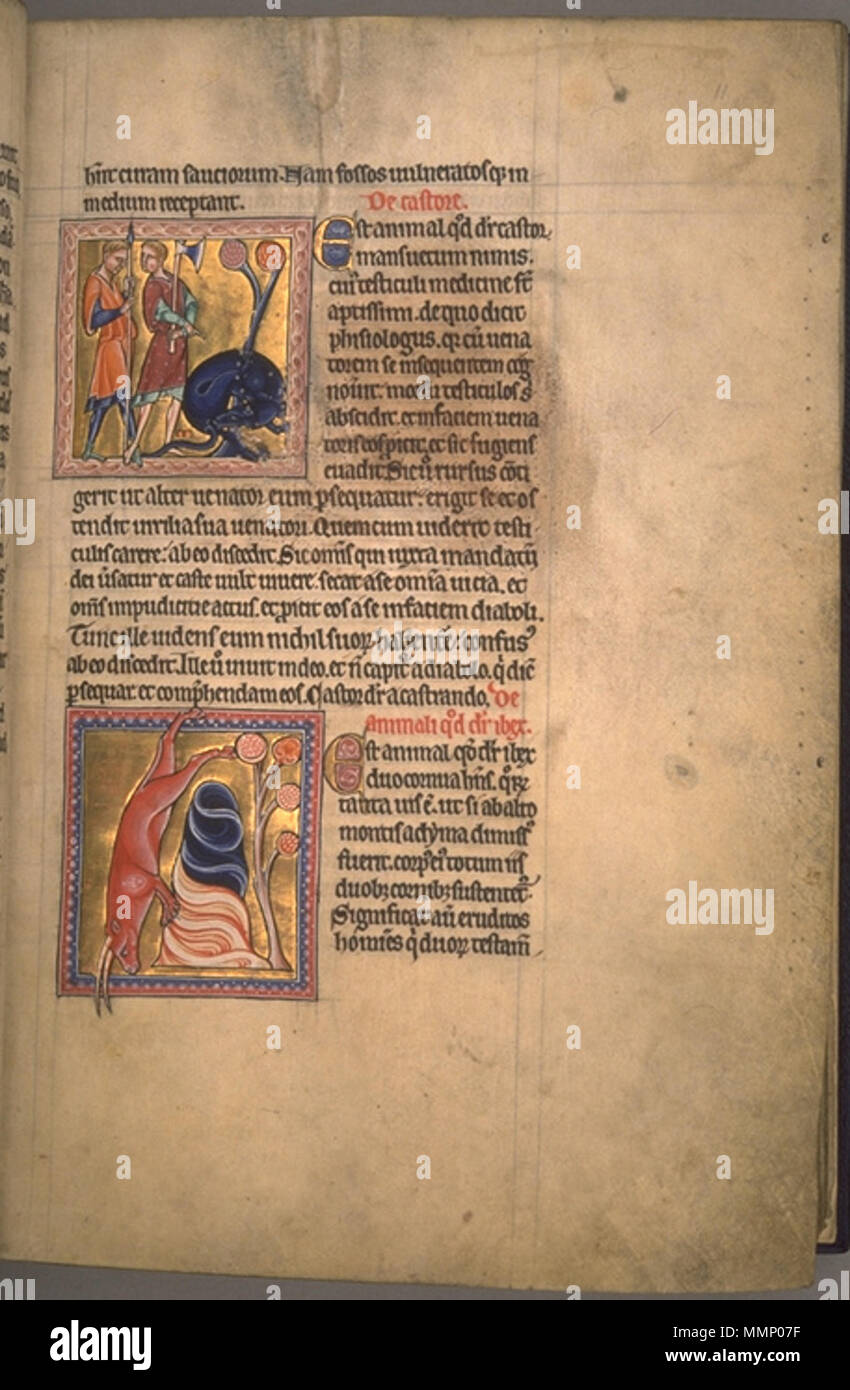 hñt curam sauciorum. Nam fossos uulneratosq; in
medium receptant. De castore.
Est animal qd̓ dr̃ castor
mansuetum nimis.
cuı̓ testiculi medicine st̃
aptissimi. de quo dicit
phisiologus. qr cũ uena
torem se insequentem cog
nouit. morsu testiculos s̓
abscidit. et in faciem uena
toris eos ꝓicit. et sic fugiens
euadit. Sic ũ rursus cõti
gerit ut alter uenator eum ꝑsequatur. erigit se et os
tendit uirilia sua uenatori. Quem cum uiderit testi
culis carere: ab eo discedit. Sic omĩs qui iuxta mandatũ
dei ũsatur et caste uult uiuere. secat a se omĩa uicia. et
omĩs impudicitie actus. et ꝓicit eos a se in faciem diaboli.
Tunc ille uidens eum nichil suoꝝ habentẽ: confusꝰ
ab eo discedit. Ille ũ uiuit in deo. et ñ capit̃ a diabolo. q̇ dic̃
ꝑsequar et comp̃hendam eos. Castor dr̃ a castrando. De
animali qd̓ dr̃ ibex.
Est animal qd̓ dr̃ ibex
duo cornua hñs. quoꝝ
tanta uis ẽ. ut si ab alto
montis ad yma dimissũ
fuerit. corpꝰ eiꝰ totum iis
duobꝫ cornibꝫ sustentet̃.
Significat aũ eruditos
homines q̇ duoꝝ testam̃
11
alamy
Image ID: MMP07F
www.alamy.com